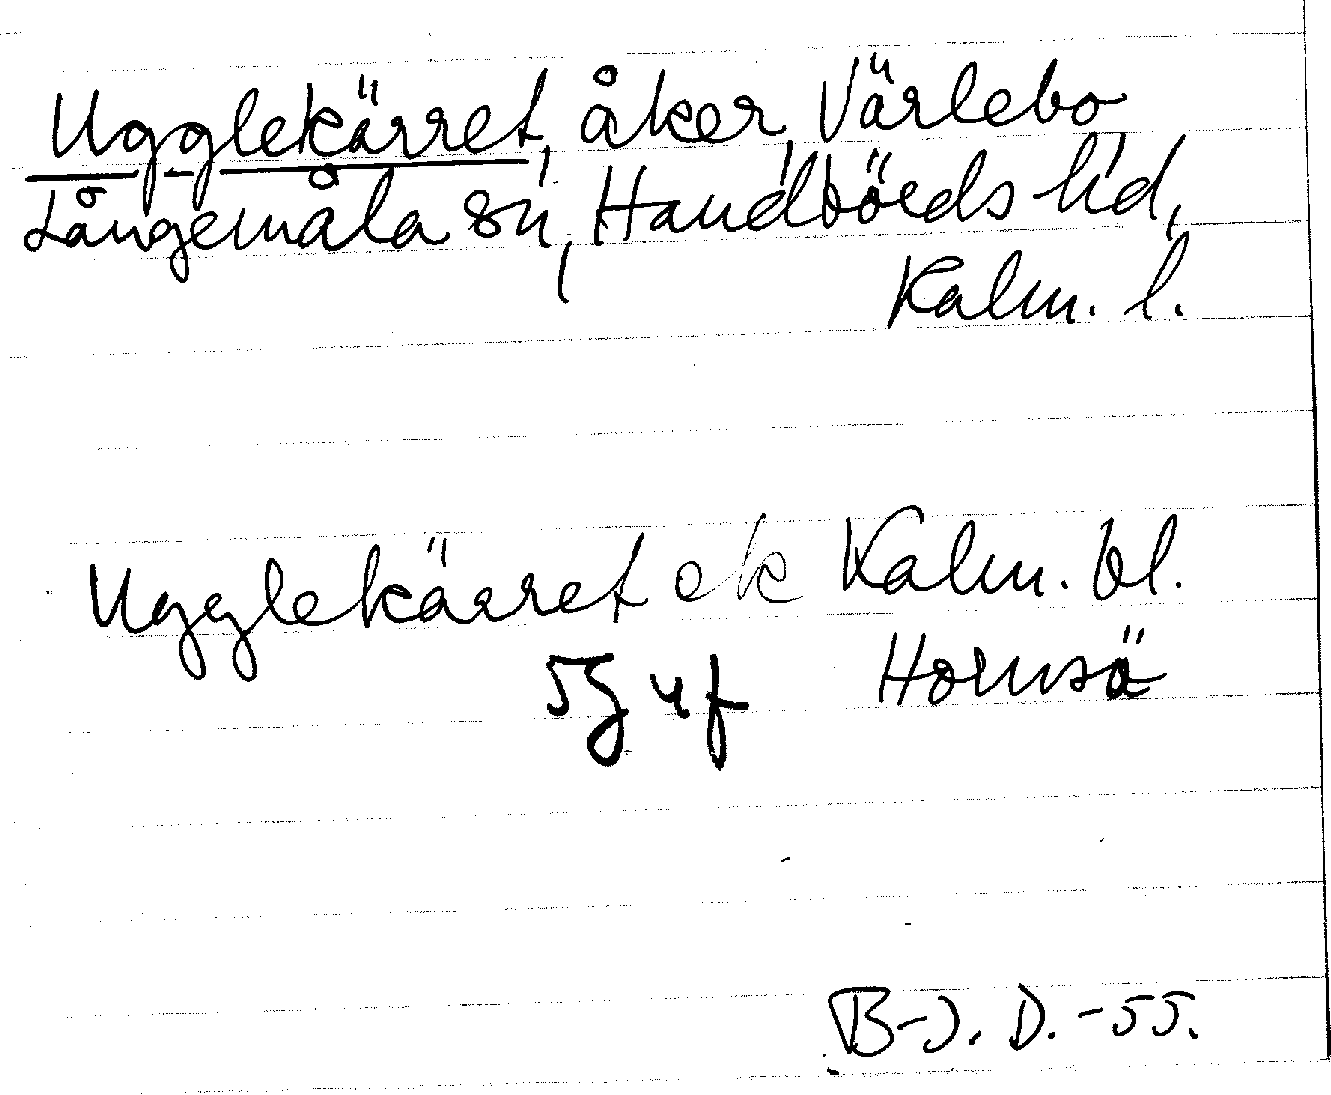 Ugglekärret, åker, Värlebo,
Långemåla sn, Handbörds hd,
Kalm. l.
Ugglekärret ek Kalm. bl.
5g4f Hornsö
B-J. D. -55.